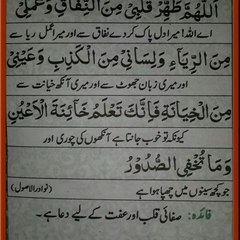 اَللّٰهُمَّ طَهِّرْ قَلْبِيْ مِنَ النِّفَاقِ وَعَمَلِيْ
اے اللہ! میرا دل پاک کر دے نفاق سے اور میرا عمل ریا سے
مِنَ الرِّيَآءِ وَلِسَانِيْ مِنَ الْكَذِبِ وَعَيْنِيْ
اور میری زبان جھوٹ سے اور میری آنکھ خیانت سے
مِنَ الْخِيَانَةِ فَاِنَّكَ تَعْلَمُ خَآئِنَةَ الْاَعْيُنِ
کیونکہ تو خوب جانتا ہے آنکھوں کی چوری اور
وَمَا تُخْفِي الصُّدُوْرُ
جو کچھ سینوں میں چھپا ہوا ہے (نوادر الاصول)
فائدہ: صفائی قلب اور عفت کے لیے دعا ہے۔